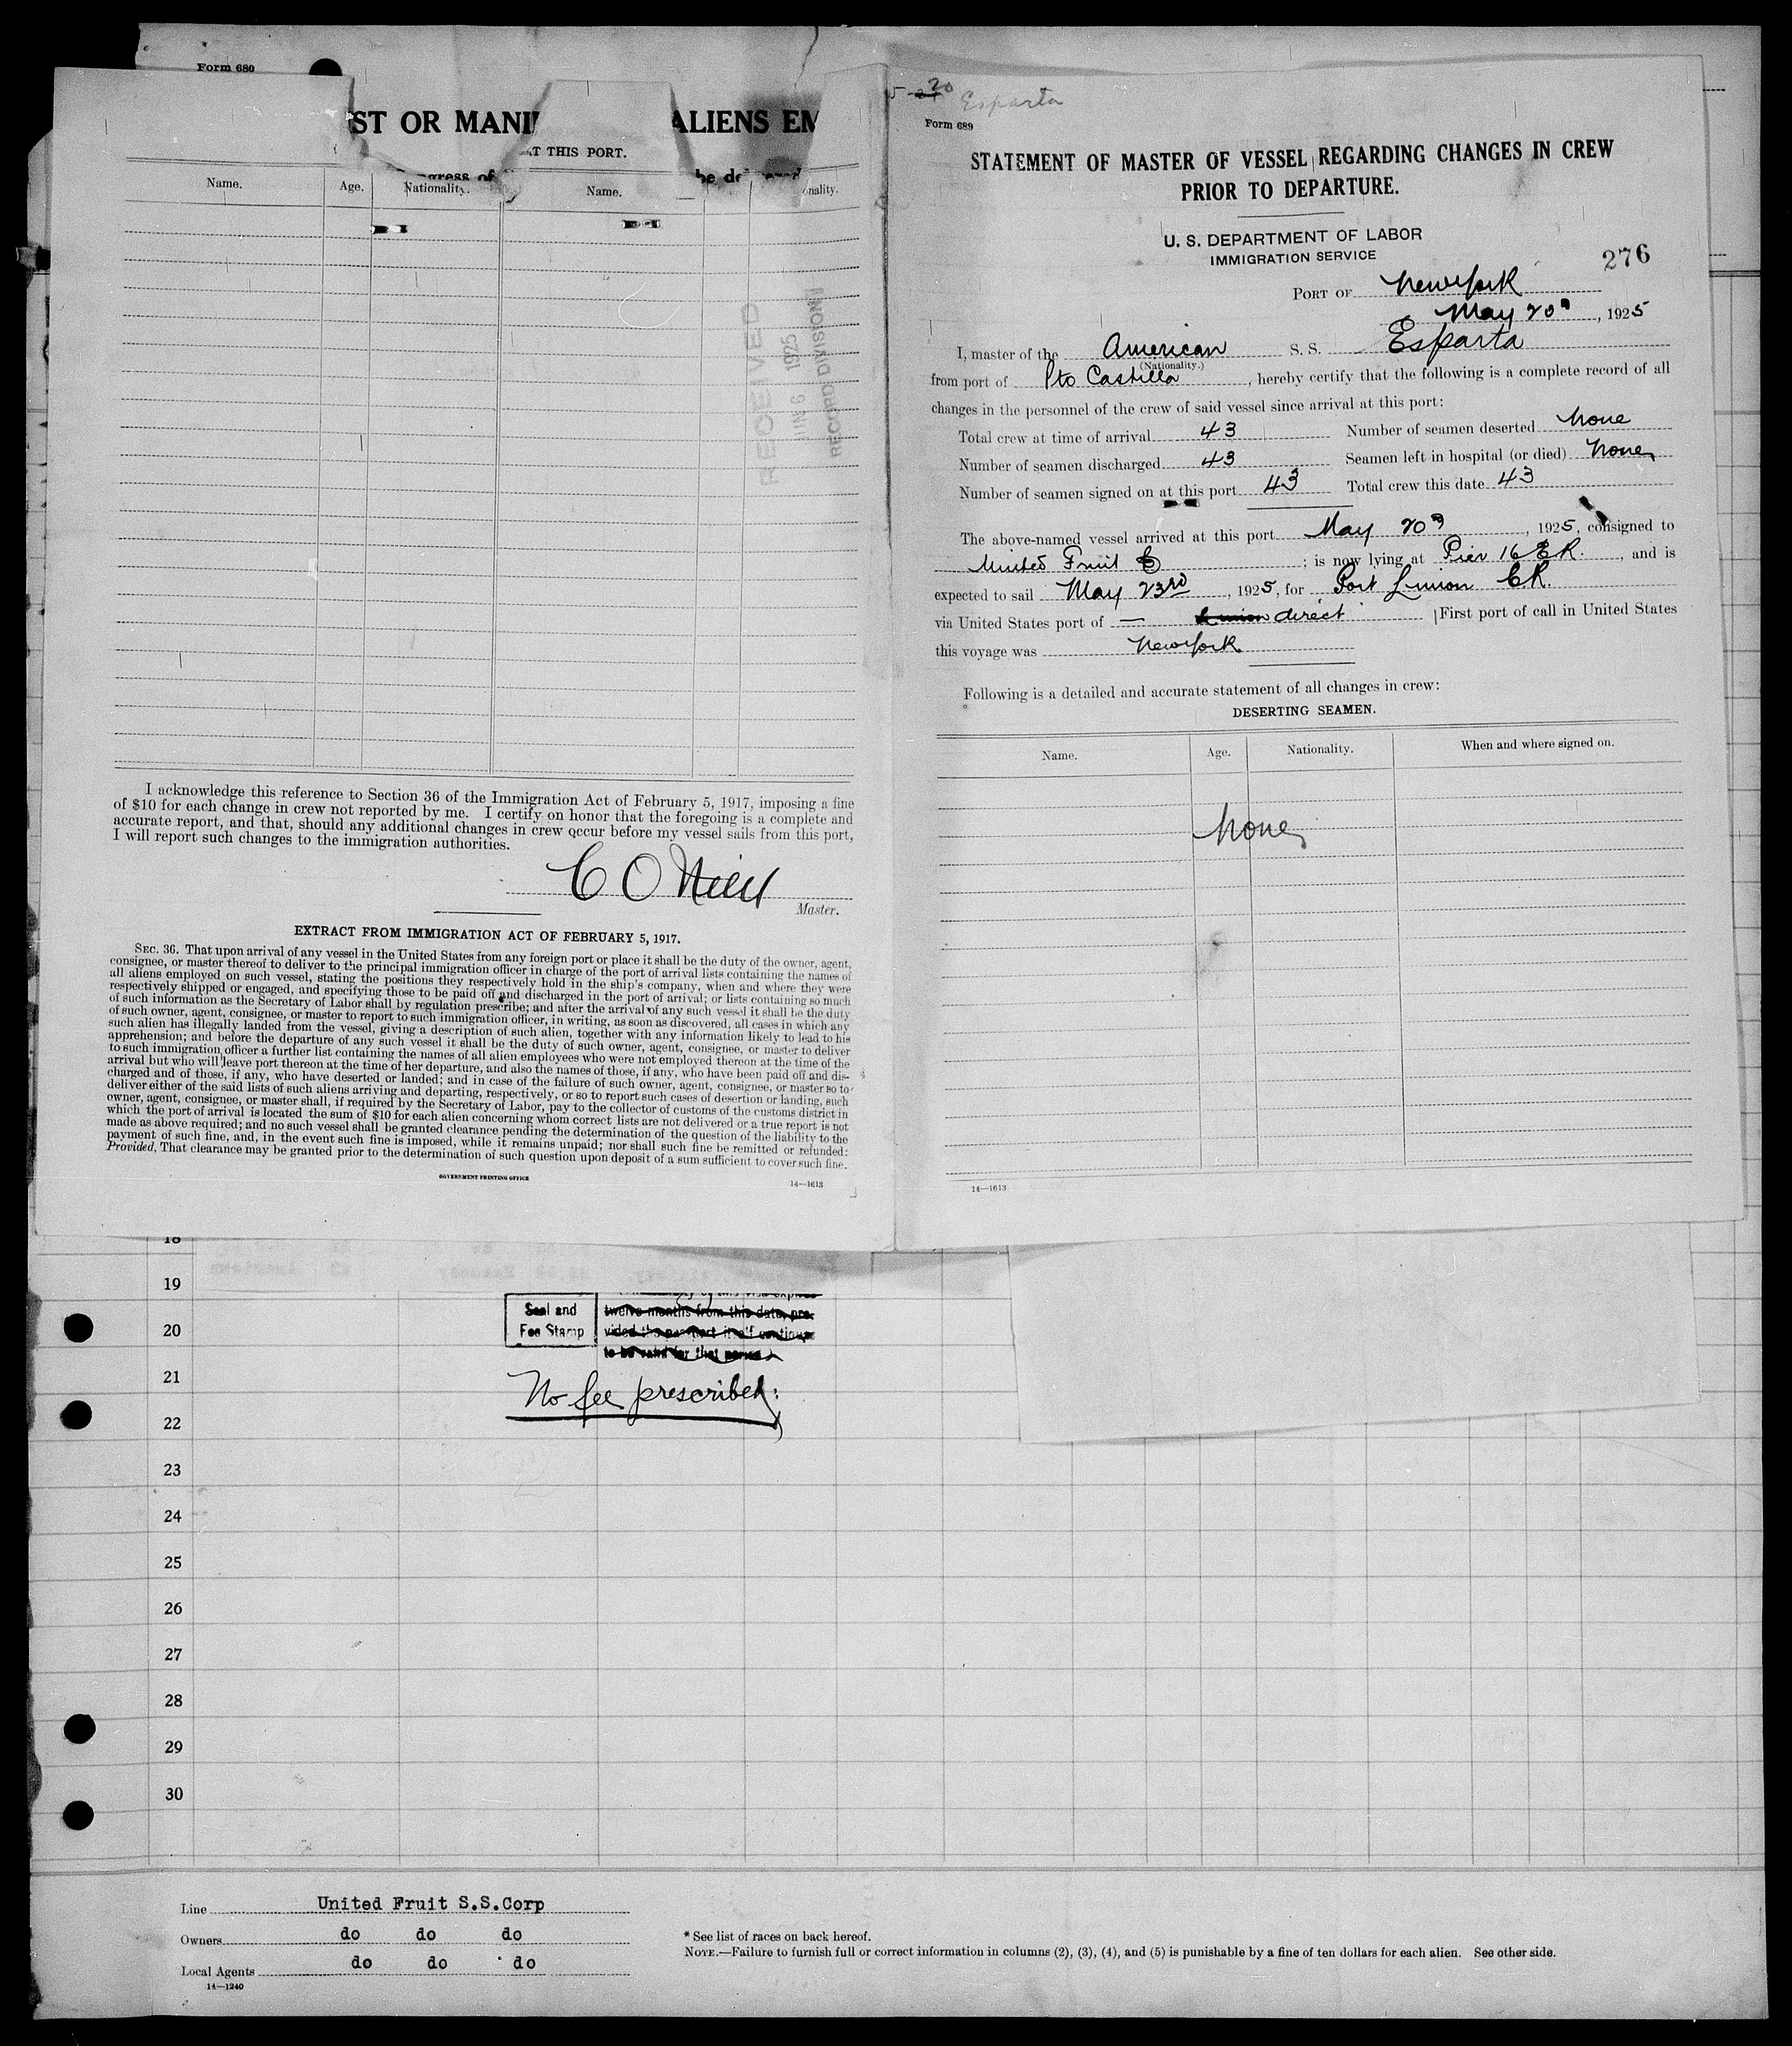 Form 680
ST OR MANI ALIENS EM
AT THIS PORT.
ngress of be de
Name. Age. Nationality. Name. onality.
RECEIVED
JUN 6 1925
RECORD DIVISION
I acknowledge this reference to Section 36 of the Immigration Act of February 5, 1917, imposing a fine
of $10 for each change in crew not reported by me. I certify on honor that the foregoing is a complete and
accurate report, and that, should any additional changes in crew occur before my vessel sails from this port,
I will report such changes to the immigration authorities.
C O Neill
Master.
EXTRACT FROM IMMIGRATION ACT OF FEBRUARY 5, 1917.
SEC. 36. That upon arrival of any vessel in the United States from any foreign port or place it shall be the duty of the owner, agent,
consignee, or master thereof to deliver to the principal immigration officer in charge of the port of arrival lists containing the names of
all aliens employed on such vessel, stating the positions they respectively hold in the ship's company, when and where they were
respectively shipped or engaged, and specifying those to be paid off and discharged in the port of arrival; or lists containing so much
of such information as the Secretary of Labor shall by regulation prescribe; and after the arrival of any such vessel it shall be the duty
of such owner, agent, consignee, or master to report to such immigration officer, in writing, as soon as discovered, all cases in which any
such alien has illegally landed from the vessel, giving a description of such alien, together with any information likely to lead to his
apprehension; and before the departure of any such vessel it shall be the duty of such owner, agent, consignee, or master to deliver
to such immigration officer a further list containing the names of all alien employees who were not employed thereon at the time of the
arrival but who will leave port thereon at the time of her departure, and also the names of those, if any, who have been paid off and dis-
charged and of those, if any, who have deserted or landed; and in case of the failure of such owner, agent, consignee, or master so to
deliver either of the said lists of such aliens arriving and departing, respectively, or so to report such cases of desertion or landing, such
owner, agent, consignee, or master shall, if required by the Secretary of Labor, pay to the collector of customs of the customs district in
which the port of arrival is located the sum of $10 for each alien concerning whom correct lists are not delivered or a true report is not
made as above required; and no such vessel shall be granted clearance pending the determination of the question of the liability to the
payment of such fine, and, in the event such fine is imposed, while it remains unpaid; nor shall such fine be remitted or refunded:
Provided, That clearance may be granted prior to the determination of such question upon deposit of a sum sufficient to cover such fine.
GOVERNMENT PRINTING OFFICE
14—1613
20 Esparta
Form 689
STATEMENT OF MASTER OF VESSEL REGARDING CHANGES IN CREW
PRIOR TO DEPARTURE.
U. S. DEPARTMENT OF LABOR
IMMIGRATION SERVICE
276
PORT OF New York
May 20th, 1925
I, master of the American S. S. Esparta
(Nationality.)
from port of Pto Castilla, hereby certify that the following is a complete record of all
changes in the personnel of the crew of said vessel since arrival at this port:
Total crew at time of arrival 43 Number of seamen deserted None
Number of seamen discharged 43 Seamen left in hospital (or died) None
Number of seamen signed on at this port 43 Total crew this date 43
The above-named vessel arrived at this port May 20th, 1925, consigned to
United Fruit Co; is now lying at Pier 16 E R., and is
expected to sail May 23rd, 1925, for Port Limon C.R.
via United States port of — Limon direct First port of call in United States
this voyage was New York
Following is a detailed and accurate statement of all changes in crew:
DESERTING SEAMEN.
Name. Age. Nationality. When and where signed on.
None
14—1613
18
19
20
21
22
23
24
25
26
27
28
29
30
Seal and
Fee Stamp
twelve months from this date, pro-
vided the passport itself continues
to be valid for that period.)
No fee prescribed.
Line United Fruit S.S.Corp
Owners do do do
Local Agents do do do
14—1240
* See list of races on back hereof.
NOTE.—Failure to furnish full or correct information in columns (2), (3), (4), and (5) is punishable by a fine of ten dollars for each alien. See other side.